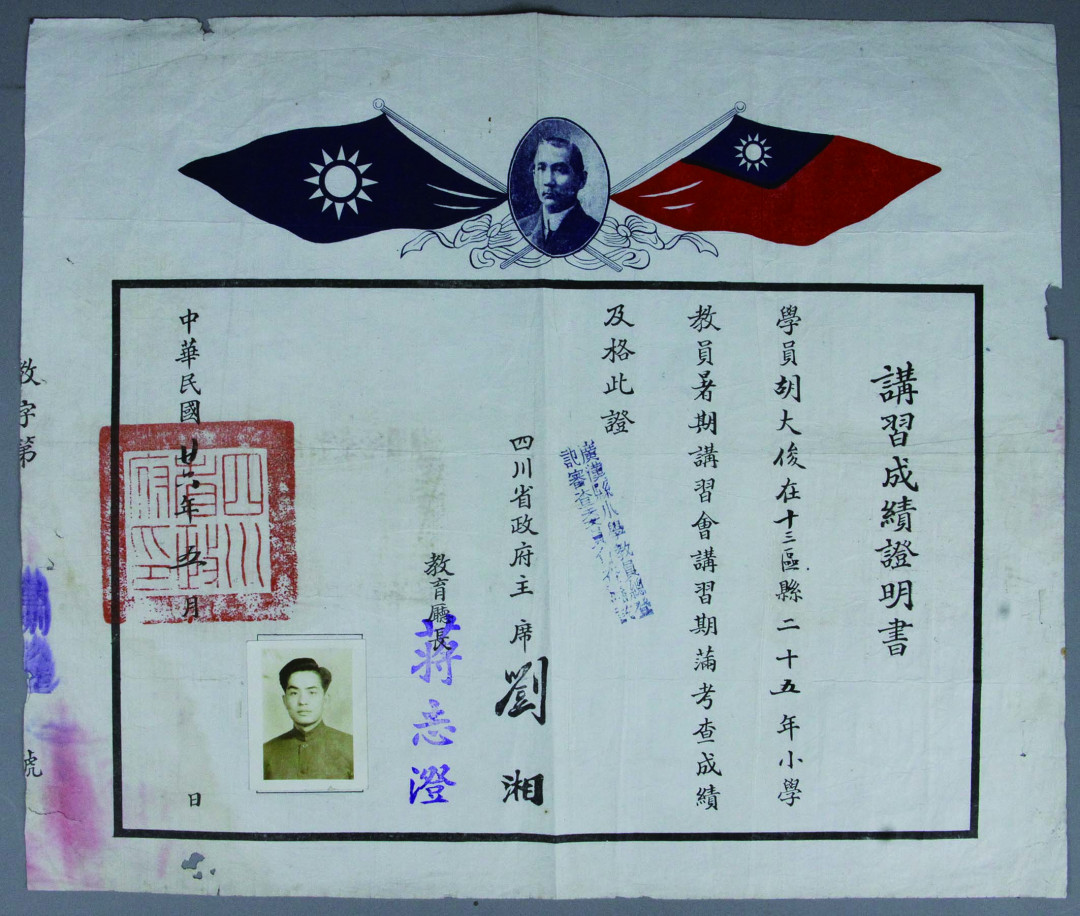 講習成績證明書
學員胡大俊在十三區縣二十五年小學
教員暑期講習會講習期滿考查成績
及格此證
廣漢縣小學教員總登
記審查委員
四川省政府主席劉湘
教育廳長蔣志澄
中華民國廿六年五月日
四川省政府印
教字第號